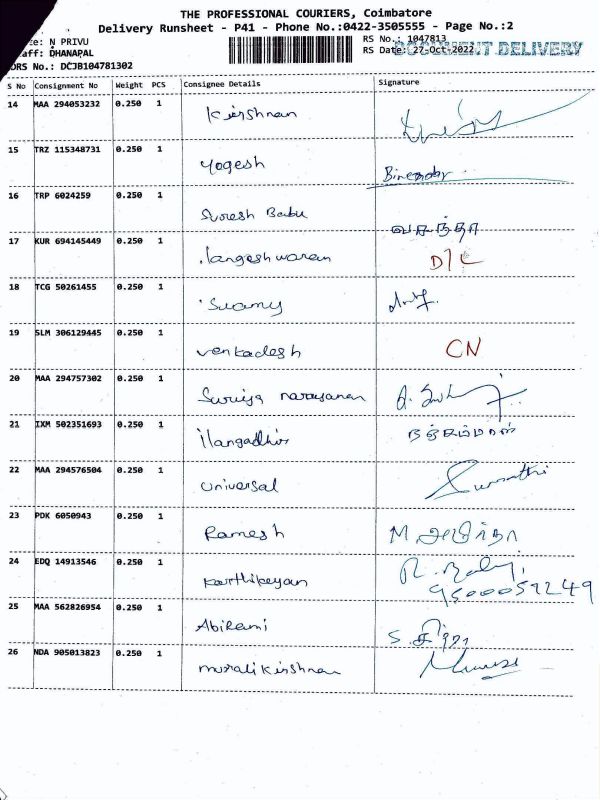 THE PROFESSIONAL COURIERS, Coimbatore
Delivery Runsheet - P41 - Phone No.:0422-3505555 - Page No.:2
N PRIVU RS No.: 1047813
DHANAPAL RS Date: 27-Oct-2022 DOCUMENT DELIVERY
DRS No.: DCJB104781302
S No Consignment No Weight PCS Consignee Details Signature
14 MAA 294053232 0.250 1 Kirshnan
15 TRZ 115348731 0.250 1 Yogesh
16 TRP 6024259 0.250 1 Suresh Babu வசந்தா
17 KUR 694145449 0.250 1 langeshwaran D/C
18 TCG 50261455 0.250 1 Swamy
19 SLM 306129445 0.250 1 venkadesh CN
20 MAA 294757302 0.250 1 Suriya narayanan
21 IXM 502351693 0.250 1 ilangadhir
22 MAA 294576504 0.250 1 Universal Sumathi
23 PDK 6050943 0.250 1 Ramesh
24 EDQ 14913546 0.250 1 Karthikeyan
9500059249
25 MAA 562826954 0.250 1 Abirami
26 NDA 905013823 0.250 1 muralikirshnan